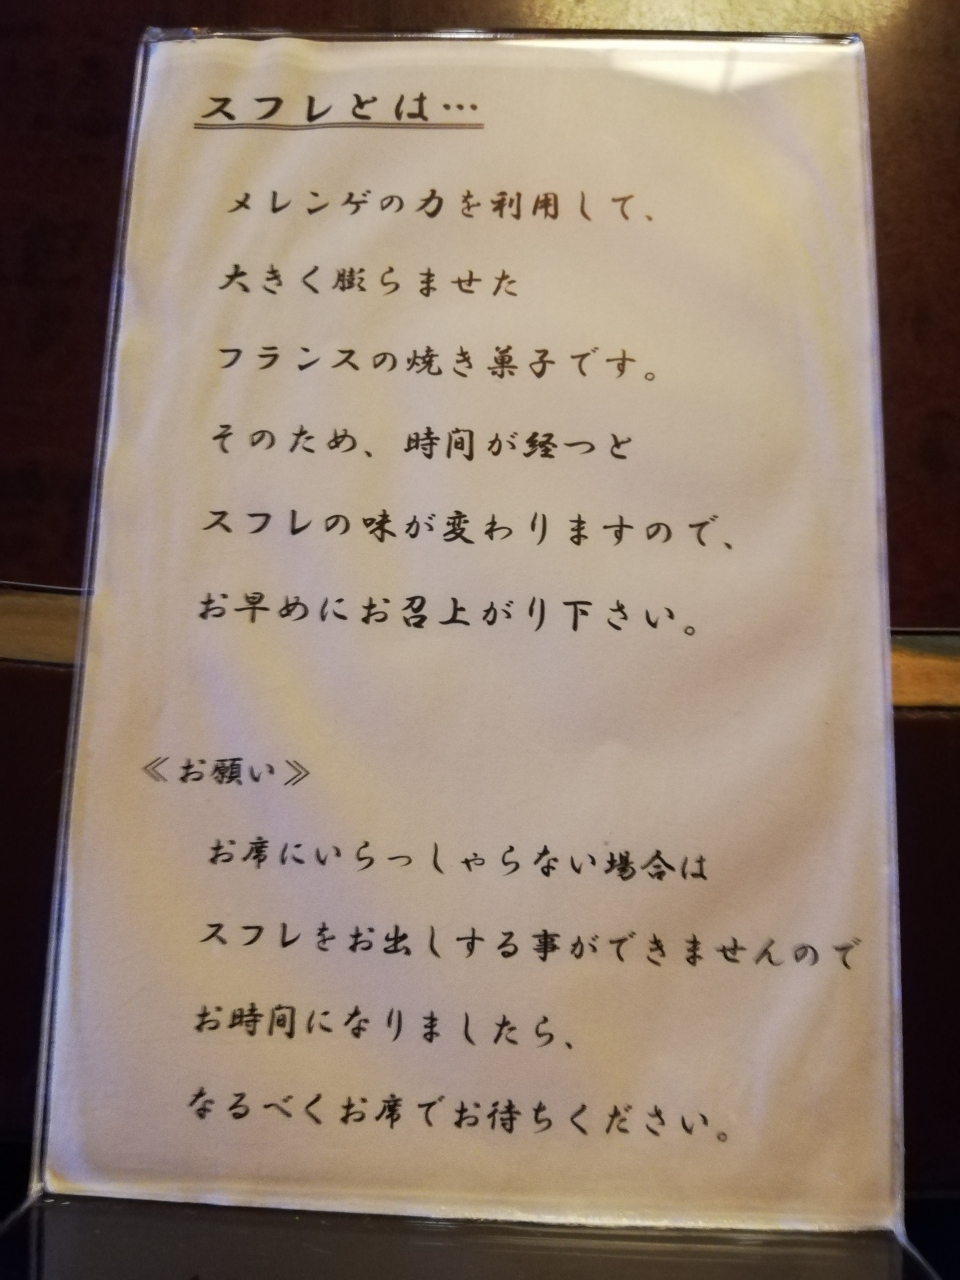 スフレとは…
メレンゲの力を利用して、
大きく膨らませた
フランスの焼き菓子です。
そのため、時間が経つと
スフレの味が変わりますので、
お早めにお召上がり下さい。
≪お願い≫
お席にいらっしゃらない場合は
スフレをお出しする事ができませんので
お時間になりましたら、
なるべくお席でお待ちください。